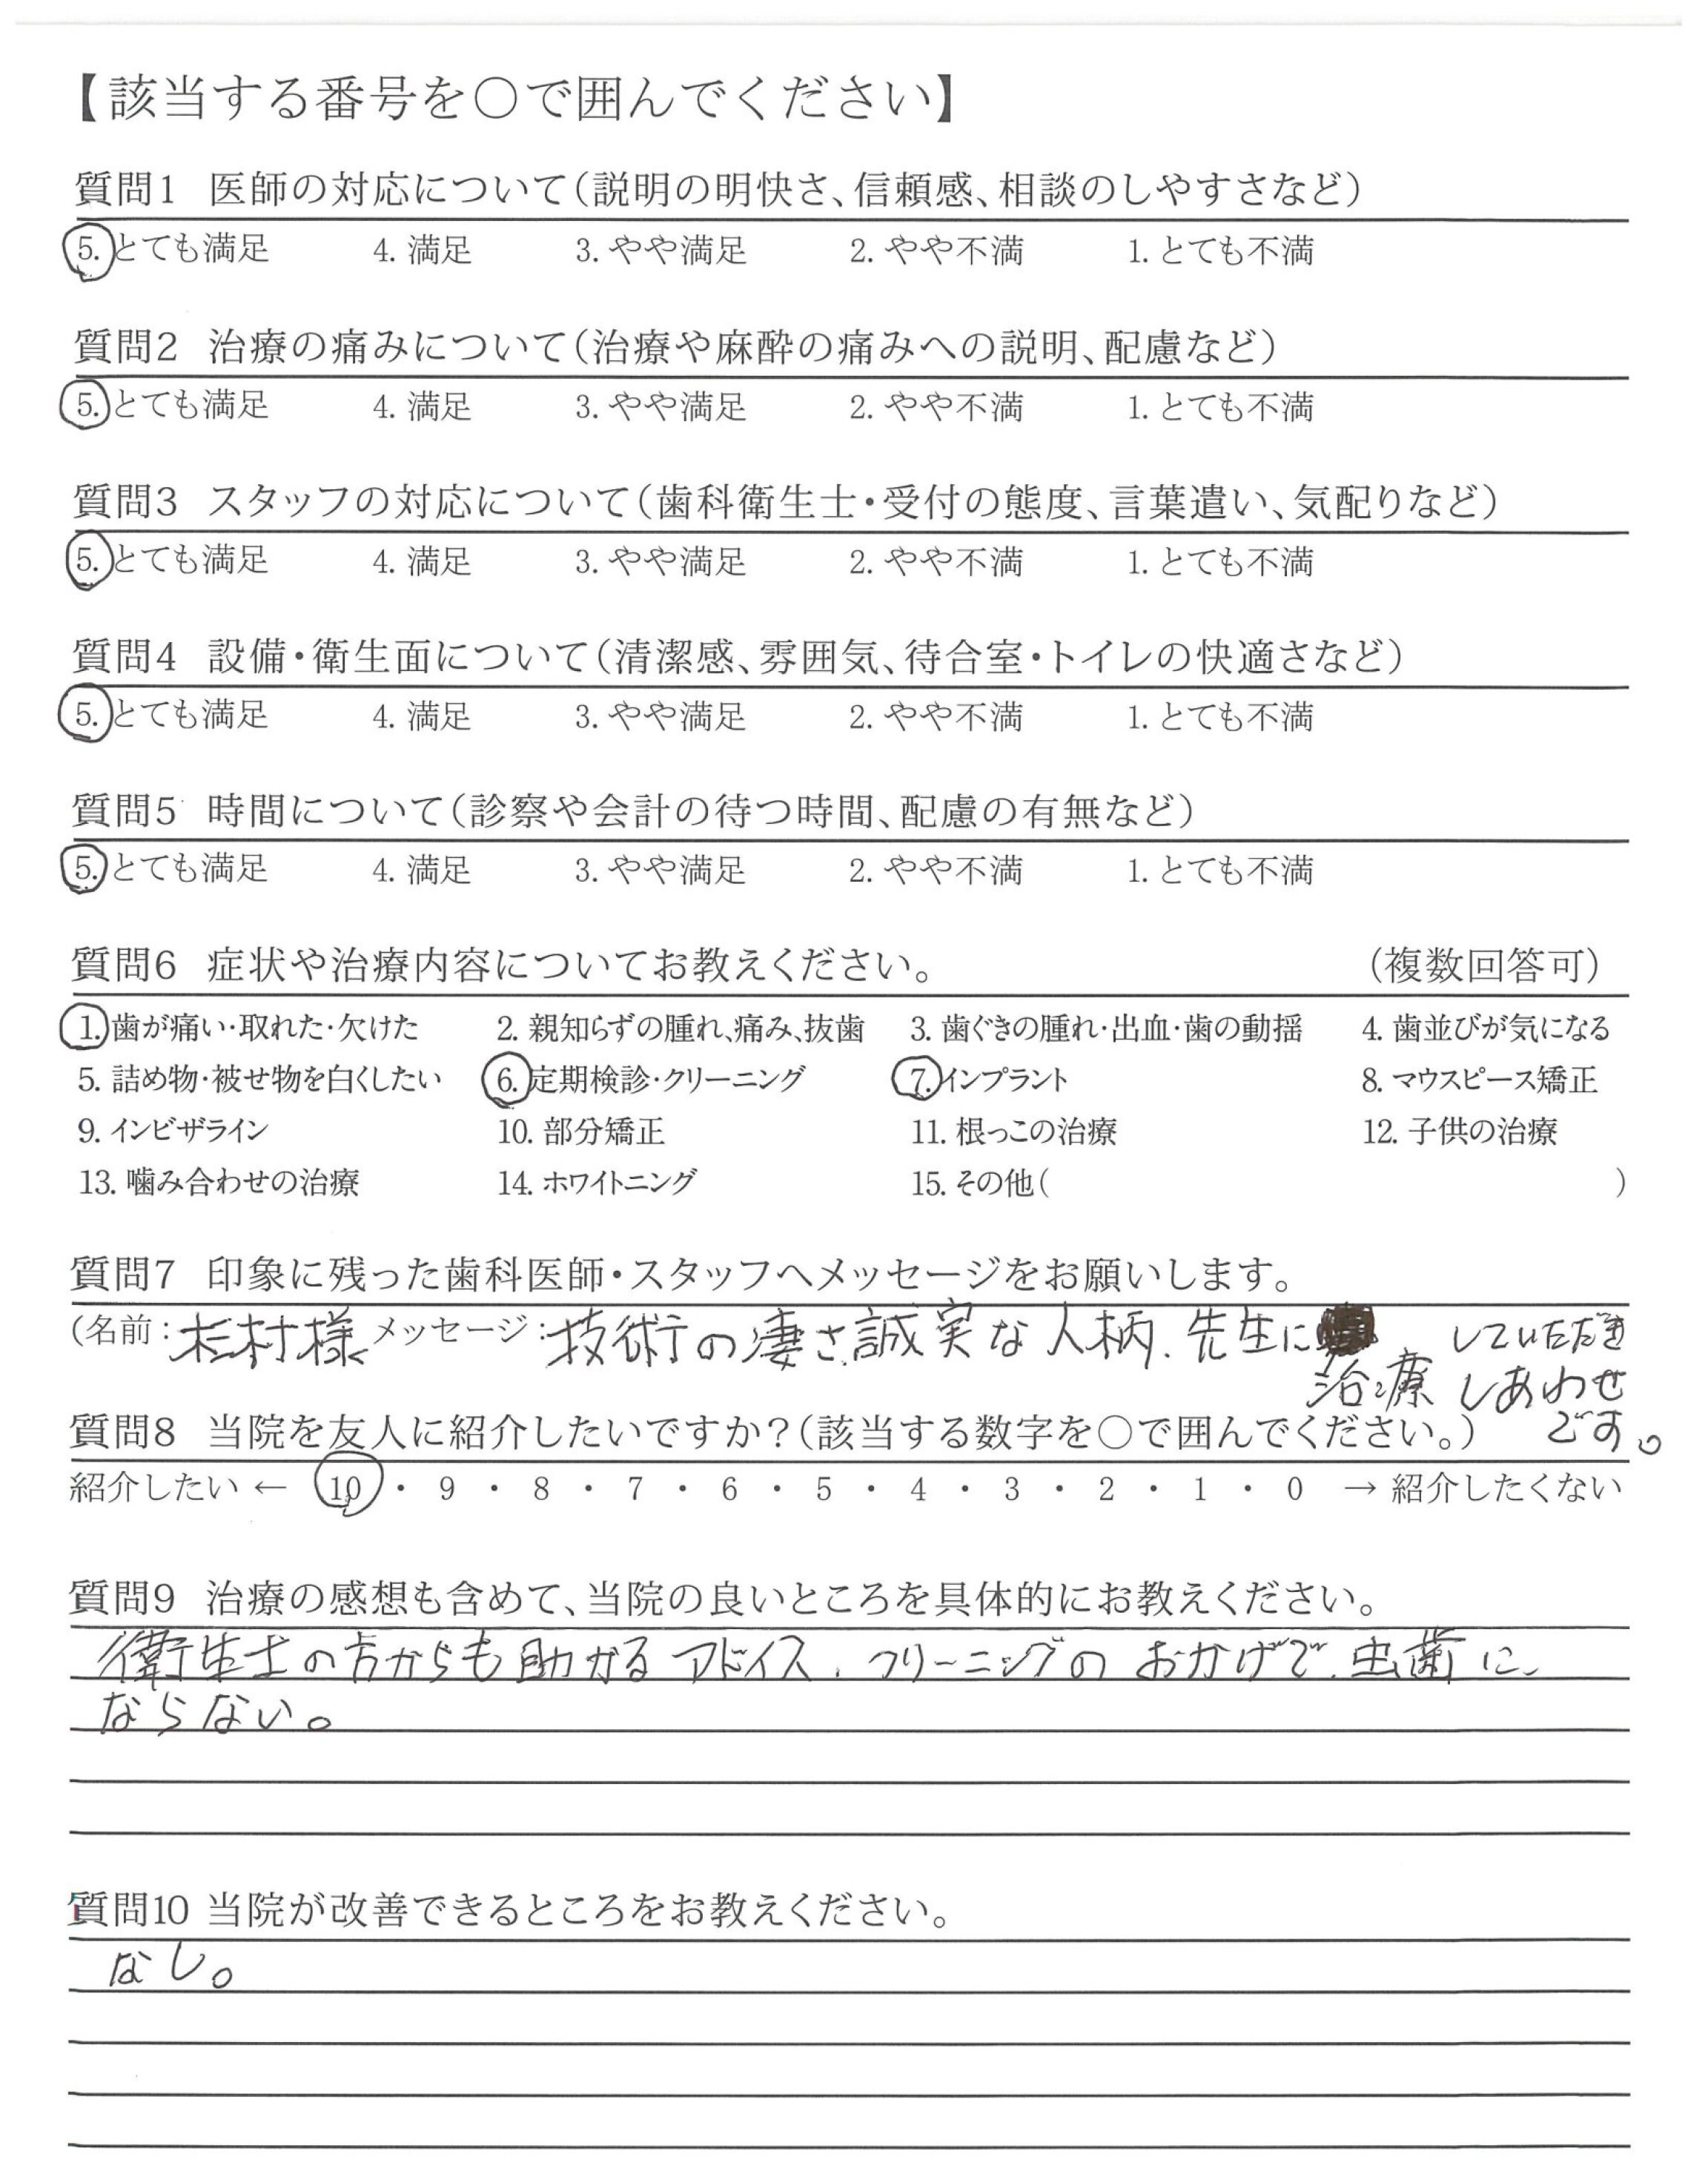 【該当する番号を○で囲んでください】
質問1 医師の対応について(説明の明快さ、信頼感、相談のしやすさなど)
5. とても満足 4. 満足 3. やや満足 2. やや不満 1. とても不満
質問2 治療の痛みについて(治療や麻酔の痛みへの説明、配慮など)
5. とても満足 4. 満足 3. やや満足 2. やや不満 1. とても不満
質問3 スタッフの対応について(歯科衛生士・受付の態度、言葉遣い、気配りなど)
5. とても満足 4. 満足 3. やや満足 2. やや不満 1. とても不満
質問4 設備・衛生面について(清潔感、雰囲気、待合室・トイレの快適さなど)
5. とても満足 4. 満足 3. やや満足 2. やや不満 1. とても不満
質問5 時間について(診察や会計の待つ時間、配慮の有無など)
5. とても満足 4. 満足 3. やや満足 2. やや不満 1. とても不満
質問6 症状や治療内容についてお教えください。 (複数回答可)
1. 歯が痛い・取れた・欠けた 2. 親知らずの腫れ、痛み、抜歯 3. 歯ぐきの腫れ・出血・歯の動揺 4. 歯並びが気になる
5. 詰め物・被せ物を白くしたい 6. 定期検診・クリーニング 7. インプラント 8. マウスピース矯正
9. インビザライン 10. 部分矯正 11. 根っこの治療 12. 子供の治療
13. 噛み合わせの治療 14. ホワイトニング 15. その他( )
質問7 印象に残った歯科医師・スタッフへメッセージをお願いします。
(名前：杉村様 メッセージ：技術の凄さ、誠実な人柄、先生に
治療 していただき
しあわせ
です。
質問8 当院を友人に紹介したいですか？(該当する数字を○で囲んでください。)
紹介したい ← 10 ・ 9 ・ 8 ・ 7 ・ 6 ・ 5 ・ 4 ・ 3 ・ 2 ・ 1 ・ 0 → 紹介したくない
質問9 治療の感想も含めて、当院の良いところを具体的にお教えください。
衛生士の方からも助かるアドイス、クリーニングのおかげで、虫歯に
ならない。
質問10 当院が改善できるところをお教えください。
なし。